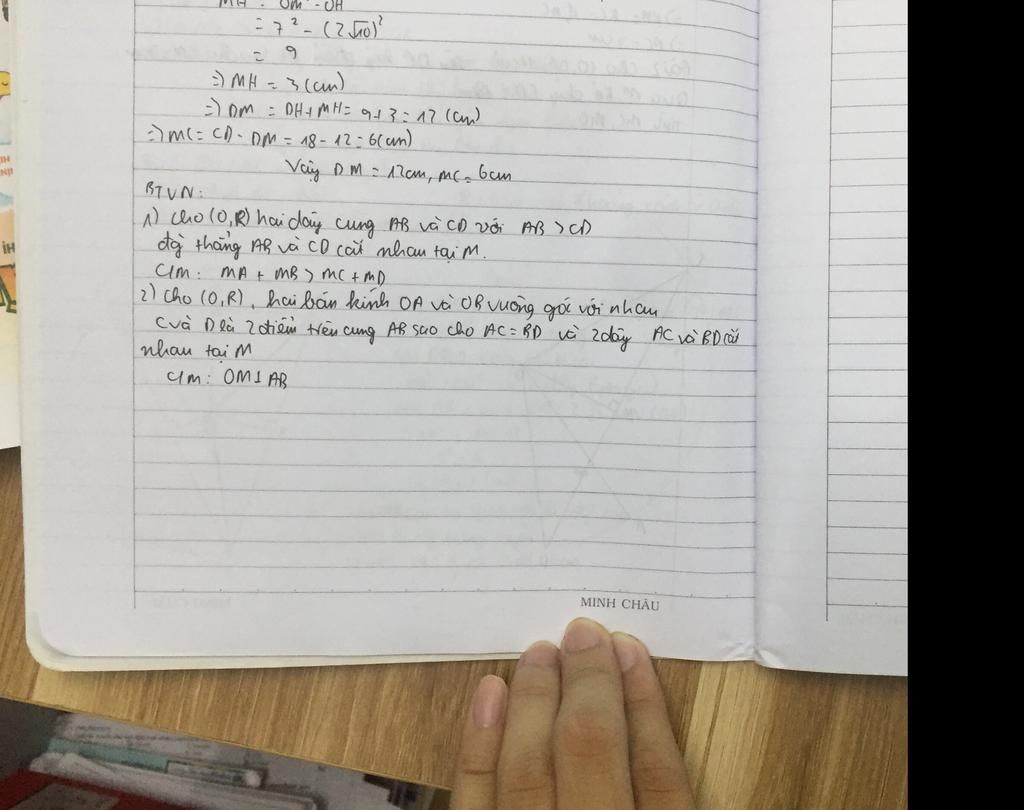 MH = OM² - OH
= 7² - (2√10)²
= 9
=> MH = 3 (cm)
=> DM = DH + MH = 9 + 3 = 12 (cm)
=> MC = CD - DM = 18 - 12 = 6 (cm)
Vậy DM = 12cm, MC = 6cm
BTVN:
1) Cho (O,R) hai dây cung AB và CD với AB > CD
đg thẳng AB và CD cắt nhau tại M.
C/m: MA + MB > MC + MD
2) Cho (O,R), hai bán kính OA và OB vuông góc với nhau
C và D là 2 điểm trên cung AB sao cho AC = BD và 2 dây AC và BD cắt
nhau tại M
C/m: OM ⊥ AB
MINH CHÂU